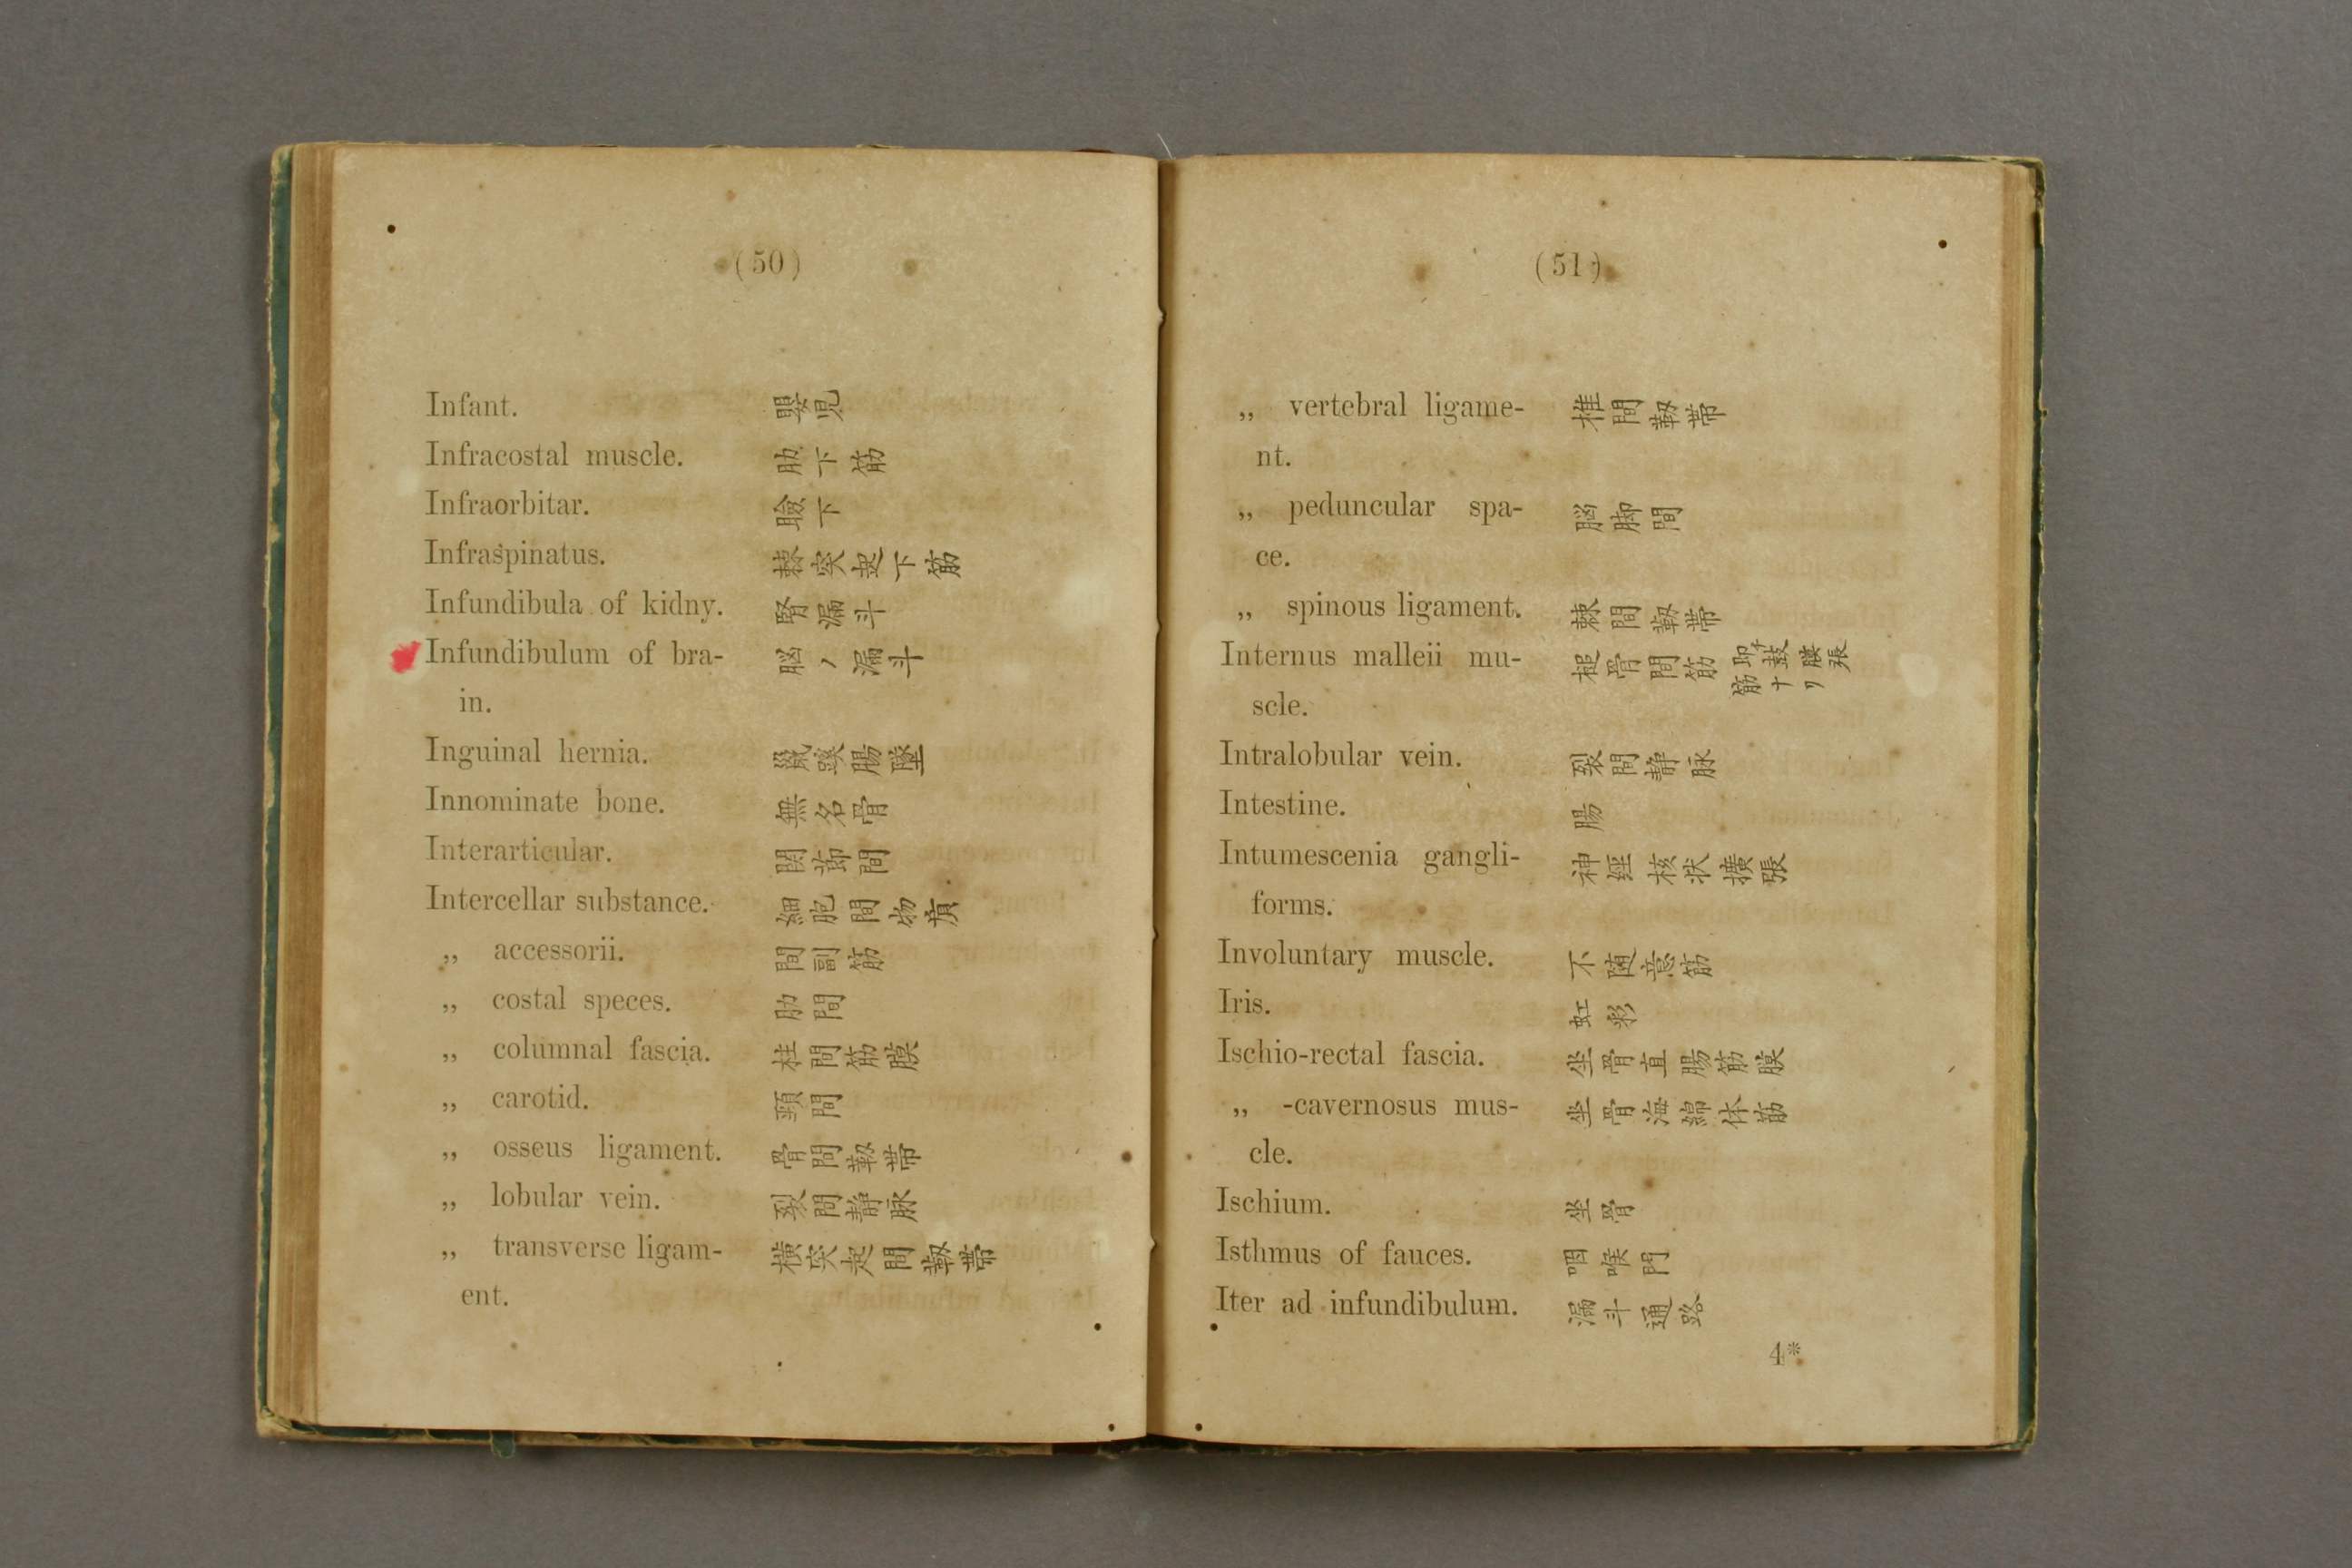 (50)
Infant. 嬰児
Infracostal muscle. 肋下筋
Infraorbitar. 瞼下
Infraspinatus. 棘突起下筋
Infundibula of kidny. 腎漏斗
Infundibulum of bra- 脳ノ漏斗
in.
Inguinal hernia. 鼠蹊腸墜
Innominate bone. 無名骨
Interarticular. 関節間
Intercellar substance. 細胞間物質
„ accessorii. 間副筋
„ costal speces. 肋間
„ columnal fascia. 柱間筋膜
„ carotid. 頸間
„ osseus ligament. 骨間靱帯
„ lobular vein. 裂間静脉
„ transverse ligam- 横突起間靱帯
ent.
(51)
„ vertebral ligame- 椎間靱帯
nt.
„ peduncular spa- 脳脚間
ce.
„ spinous ligament. 棘間靱帯
Internus malleii mu- 槌骨間筋 即チ鼓膜張筋ナリ
scle.
Intralobular vein. 裂間静脉
Intestine. 腸
Intumescenia gangli- 神経核状擴張
forms.
Involuntary muscle. 不随意筋
Iris. 虹彩
Ischio-rectal fascia. 坐骨直腸筋膜
„ -cavernosus mus- 坐骨海綿体筋
cle.
Ischium. 坐骨
Isthmus of fauces. 咽喉門
Iter ad infundibulum. 漏斗通路
4*